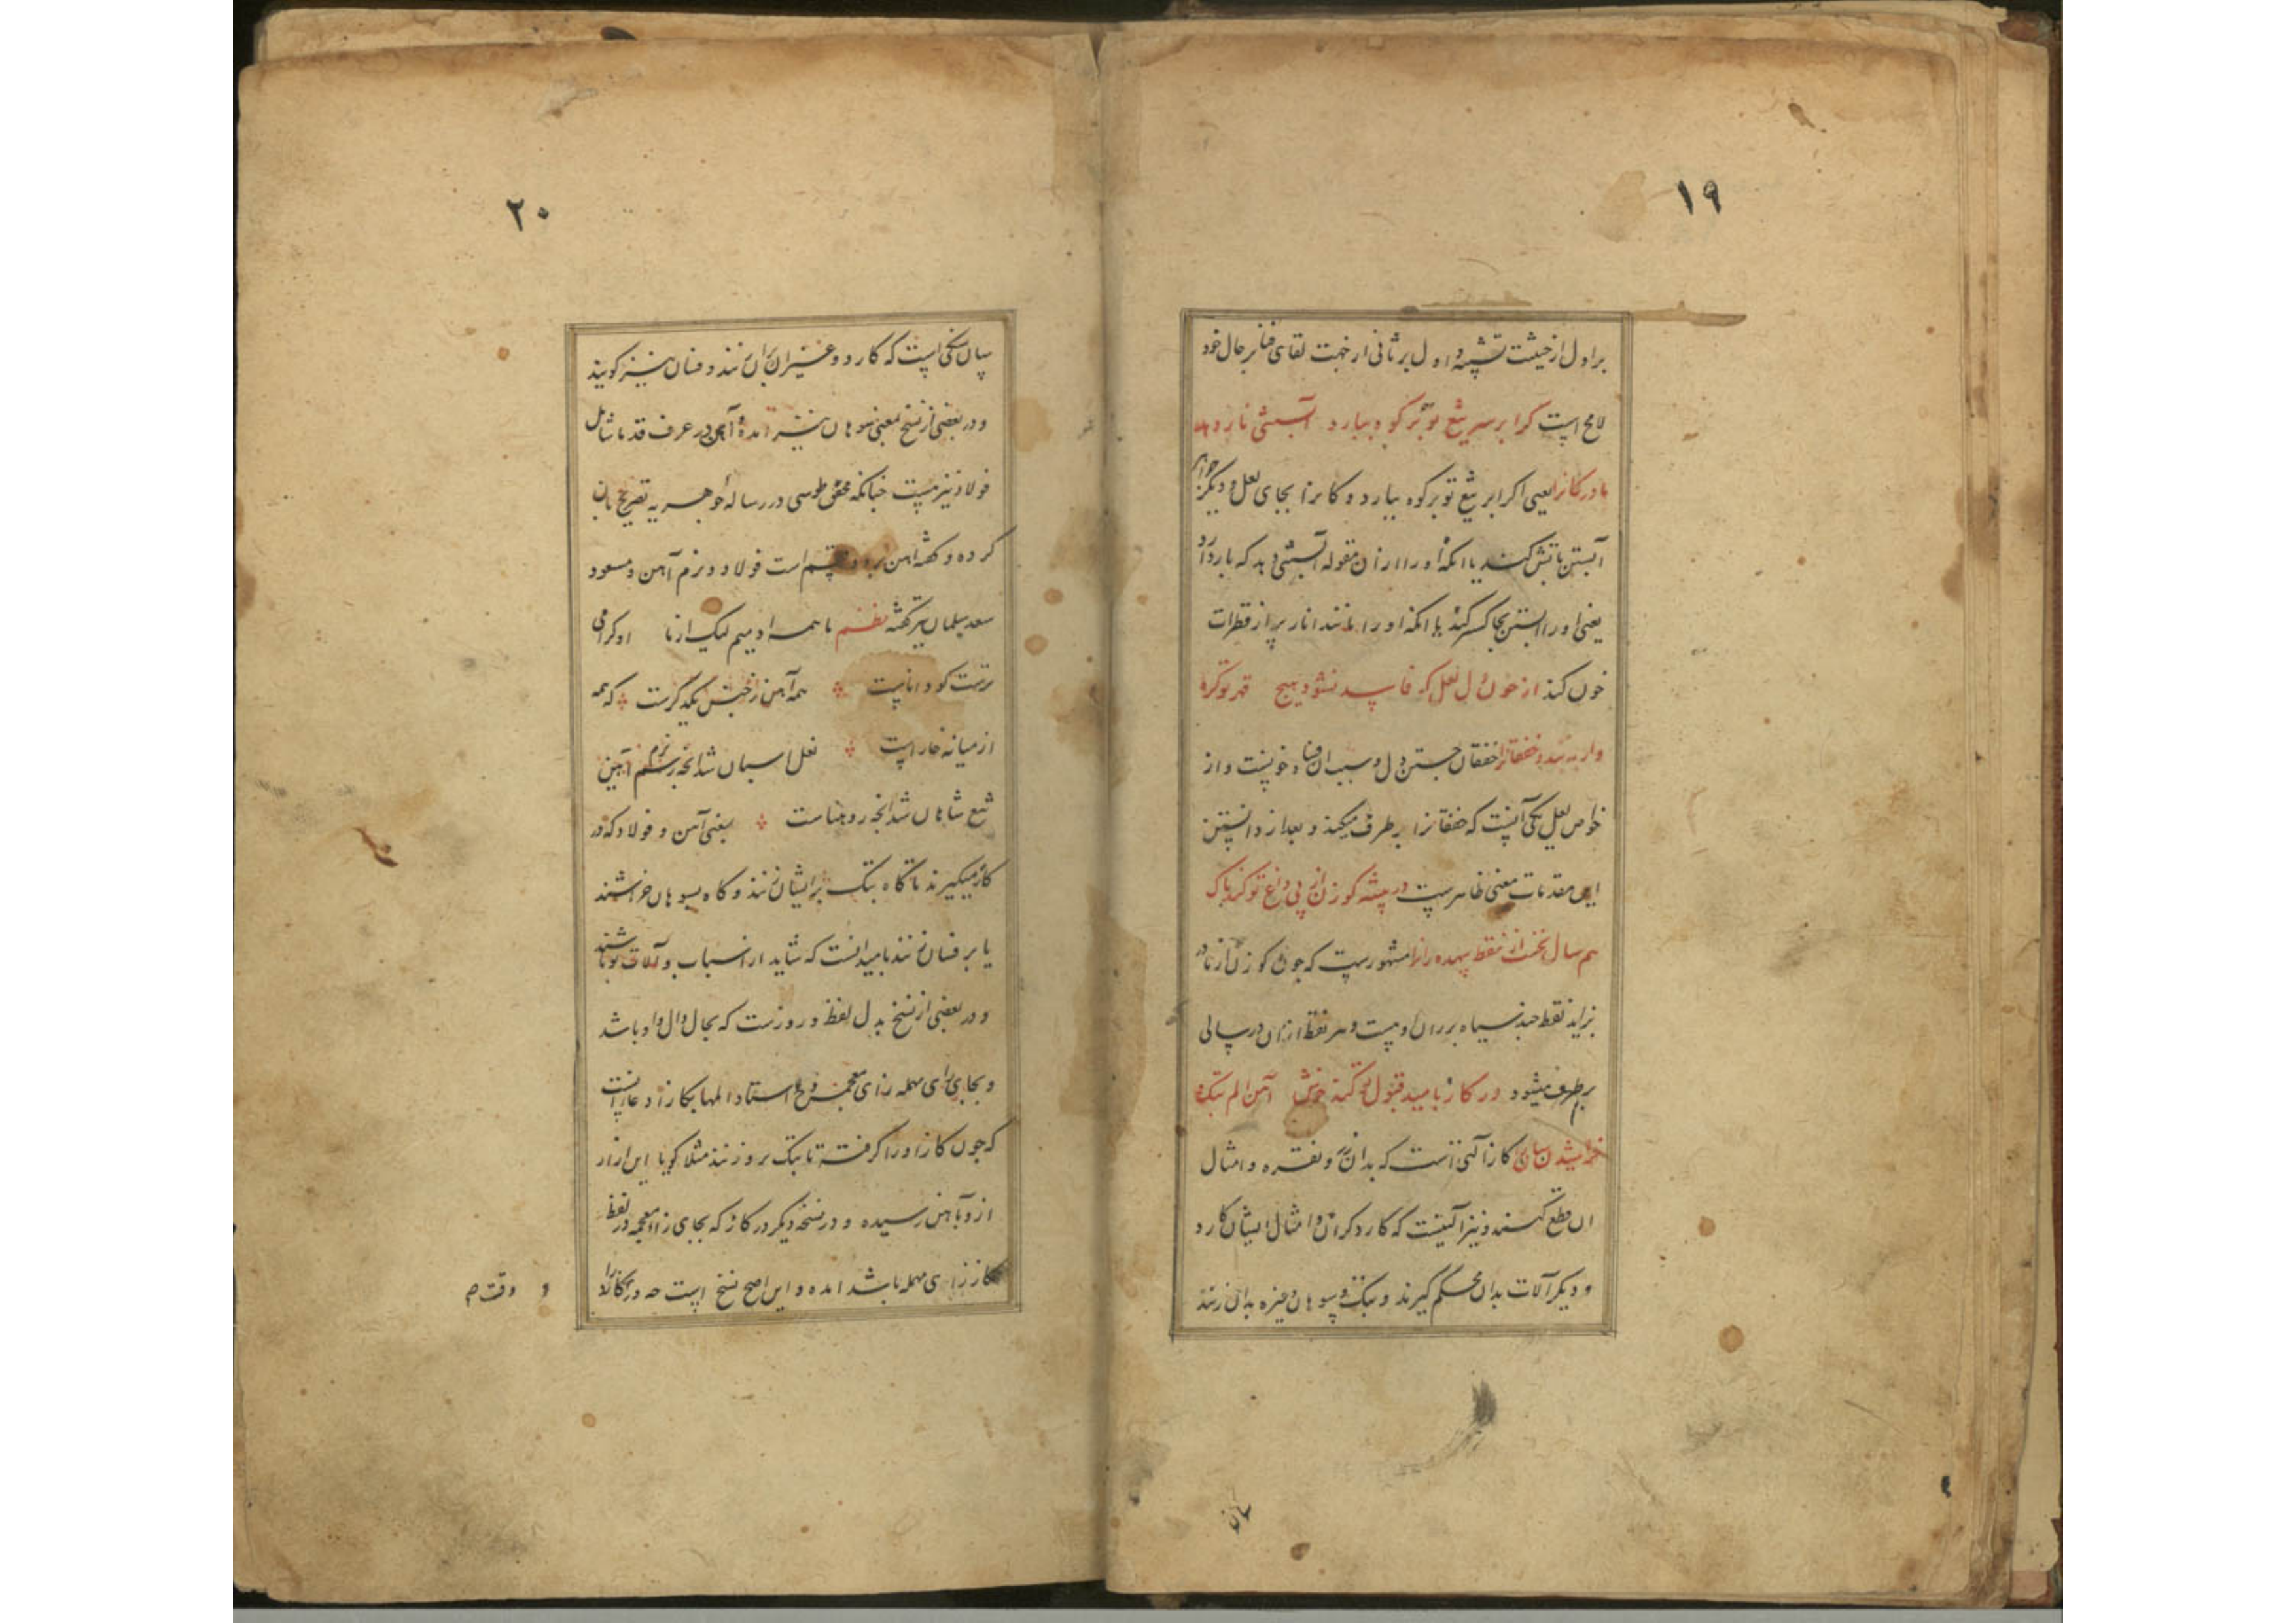 ١٩
بر اول از حیثیت تشبیه و اول بر ثانی از جهت لقای فنا بر حال خود
لایح است کر ابر سر تیغ تو بر کوه ببارد آبستنی نار دهد
مادر کانرا یعنی اکر ابر تیغ تو بر کوه ببارد و کانرا بجای لعل و دیکر جواهر
آبستن باتش کند یا انکه او را از ان مقوله آبستنی دهد که بار دارد
یعنی او را آبستن بجا کستر کند یا انکه او را مانند انار پر از قطرات
خون کند از خون دل لعل که فاسد نشود هیچ قهر تو کره
وار به بندد خفقانرا خفقان جستن دل و سبب ان فساد خونست و از
خواص لعل یکی آنست که خفقانرا بر طرف میکند و بعد از دانستن
این مقدمات معنی ظاهرست در بیشه کوزن از پی داغ تو کند پاک
هم سال نخست از نقط بیهده رانرا مشهورست که چون کوزن از مادر
بزاید نقط چند سیاه بر ران اوست و هر نقطه از ان در سالی
بر طرف میشود در کاز بامید قبول تو کند خوش آهن الم پتک و
خراشیدن سانرا کاز آلتی است که بدان زر و نقره و امثال
ان قطع کنند و نیز آلتیست که کارد کران و امثال ایشان کارد
و دیکر آلات بدان محکم کیرند و پتک و سوهان و غیره بدان زنند
سان
٢٠
سان سنکی است که کارد و غیر ان بران زنند و فسان نیز کویند
و در بعضی از نسخ بمعنی سوهان نیز امده و آهن در عرف قدما شامل
فولاد نیز هست چنانکه محقق طوسی در رساله جوهریه تصریح بان
کرده و کفته اهن بر دو قسم است فولاد و نرم آهن و مسعود
سعد سلمان نیز کفته نظم ما همه ادمییم لیک از ما او کرامی
ترست کو داناست همه آهن ز جنس یکدیکرست که همه
از میانه خاراست نعل اسبان شد آنچه نرم آهن
تیغ شاهان شد آنچه رو هیناست یعنی آهن و فولاد که در
کاز میکیرند تا کاه پتک بر ایشان زنند و کاه بسوهان خراشند
یا بر فسان زنند بامید انست که شاید از اسباب و آلات تو باشند
و در بعضی از نسخ بدل لفظ در وزست که بجال دال واو باشد
و بجای رای مهمله زای معجمه
که چون کاز او را کرفته تا پتک برو زنند مثلا کویا این ازار
ازو بآهن رسیده و در نسخه دیکر در کاز که بجای زا معجمه در لفظ
کاز زای مهمله باشد امده و این اصح نسخ است چه در کار را
و دقت ص